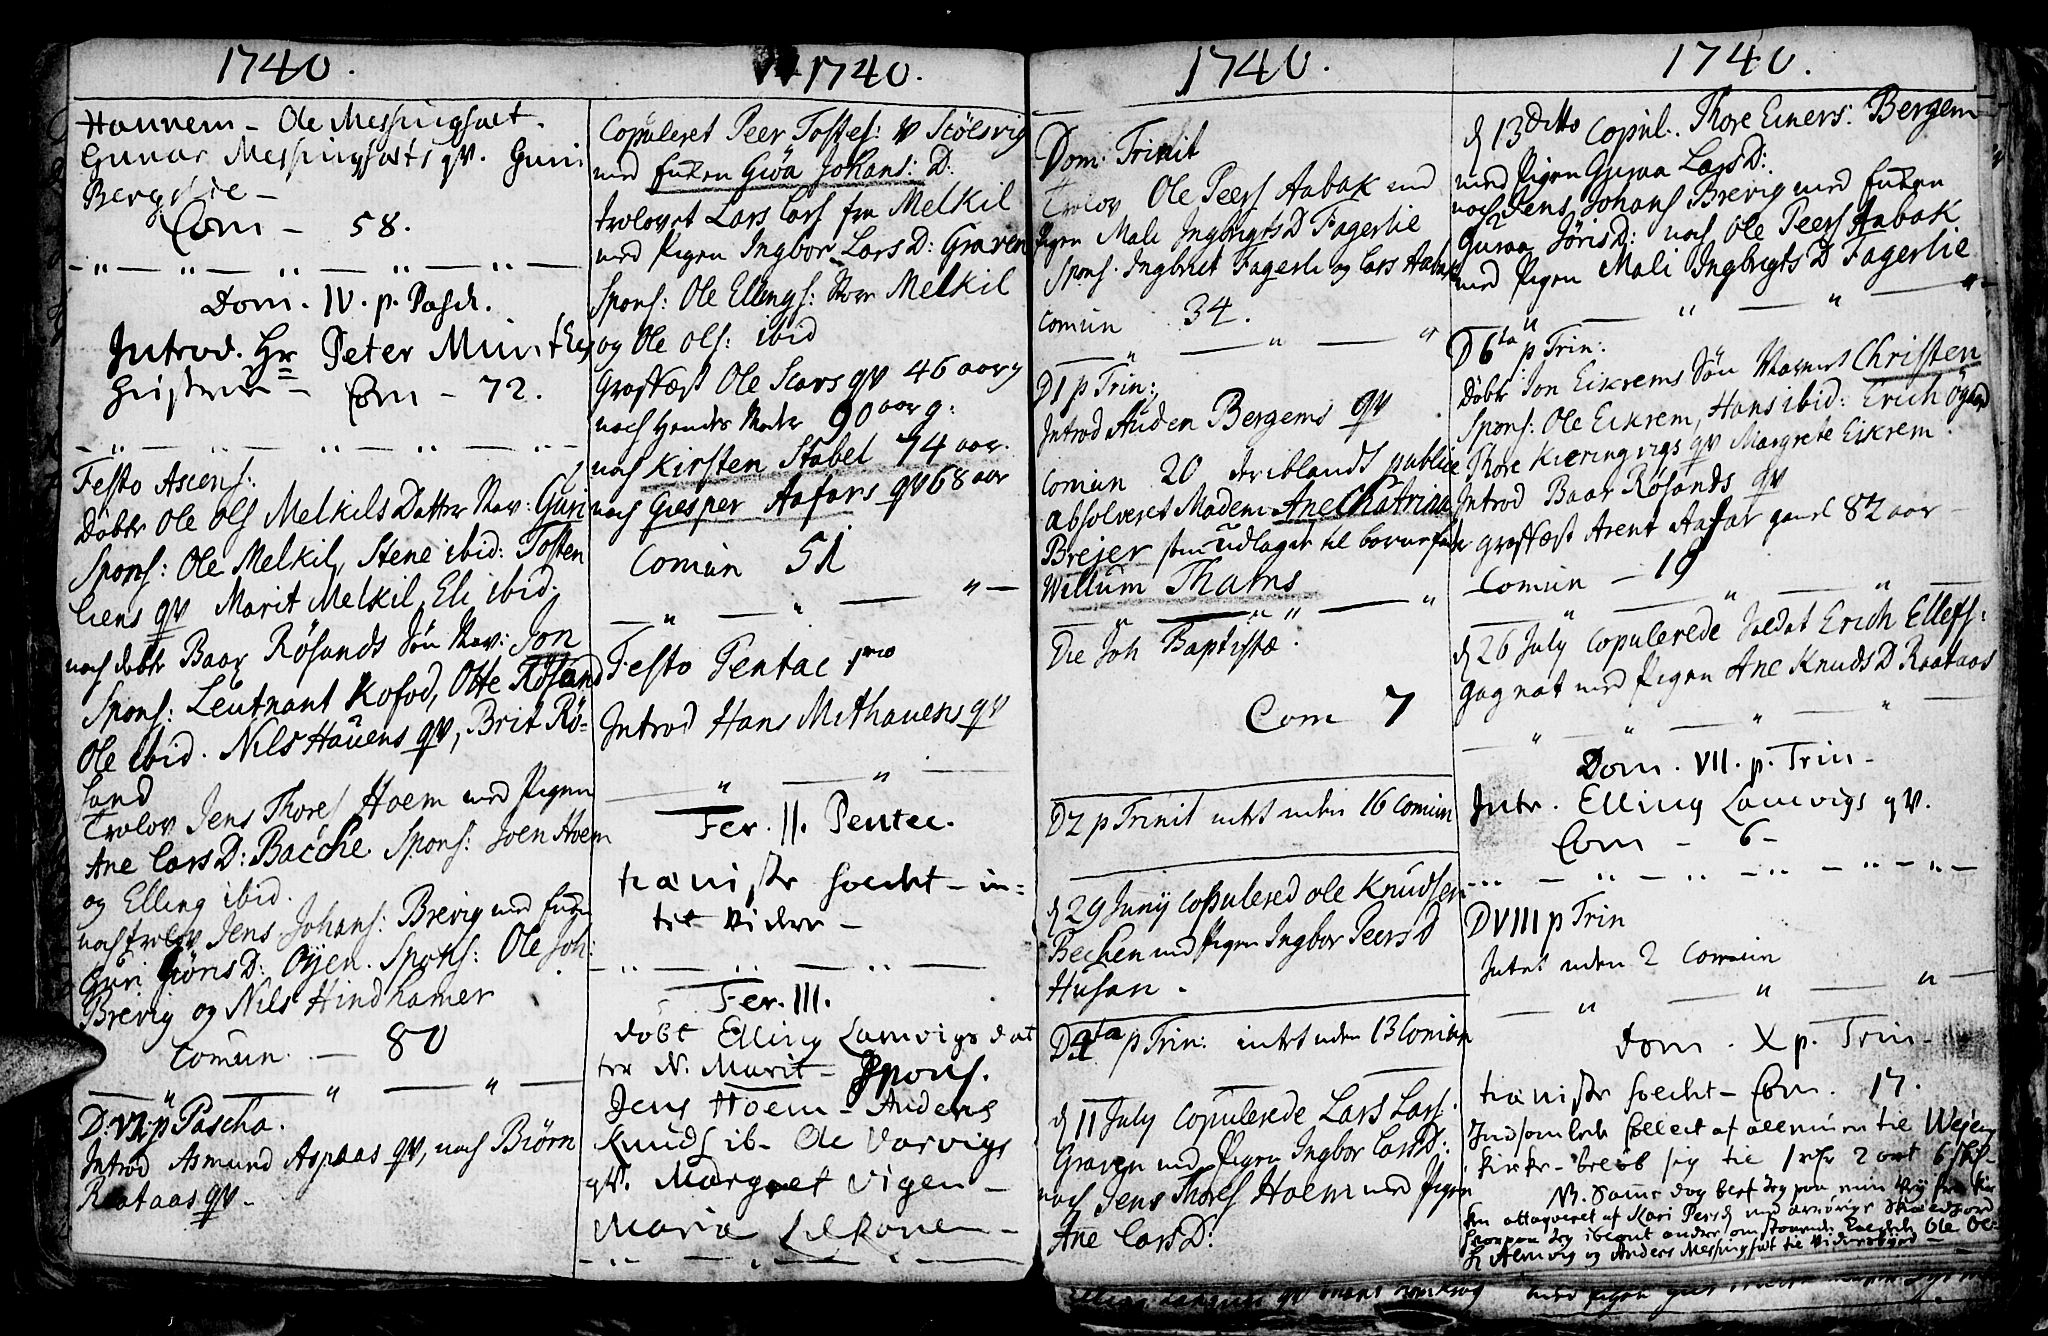 1740.
Hannem - Ole Messingsæt.
Gunar Messingsæts qv. Guri
Bergslie -
Com - 58.
Dom. IV. p. Pasch.
Introd. Hr Peter Munthes
Com - 72.
Festo Ascens:
Döbt Ole Ols Melkils Datter Nav: Guri
Spons: Ole Melkil, Stene ibid: Tosten
Liens qv Marit Melkil, Eli ibid.
noch döbt Baar Rösands Sön Nav: Jon
Spons: Leutnant Kofod, Otte Rösand
Ole ibid. Nils Hauens qv, Brit Rö-
sand
Trolov Jens Thores Hoem med Pigen
Ane Lars D: Bacche Spons: Joen Hoem
og Elling ibid.
noch trolov Jens Johans: Brevig med Enken
Guri Jöris D: Öyen. Spons: Ole Joh:
Brevig og Nils Hindhamer
Comun. - 80
D. VI. p Pascha.
Introd Asmund Aspaas qv, noch Biörn
Raataas qv -
1740.
Copuleret Peer Tostes: Stölsvig
med Enken Giöa Johans: D:
trolovet Lars Lars fra Melkil
med Pigen Ingbor Lars D: Graven
Spons: Ole Ellings: Store Melkil
og Ole Ols: ibid
Grafæst Ole Scars qv 46 aar g
noch Hendes Moder 90 aar g:
noch Kirsten Stabel 74 aar.
noch Giesper Aafars qv 68 aar
Comun 51
Festo Pentac 1mo
Introd Hans Methauens qv
Fer. II. Pentec.
in-
tet videre -
Fer. III.
döbt Elling Lamvigs dat
ter N. Marit - Spons.
Jens Hoem - Anders
Knuds ib - Ole Varvigs
qv. Margret Vigen -
Maria Lilronen -
1740.
Dom. Trinit
Trolov Ole Peers Aabak med
Pigen Mali Ingbrigts D Fagerlie
Spons. Ingbriet Fagerli og Lars Aabak
Comun 34.
D 1 p Trin:
Introd Auden Bergems qv
Comun 20 iblandt publice
absolveret Madem Ane Chatrina
Brejer som udlagde til barnefader
Willum Thams
Die Joh Baptistæ.
Com 7
D 2 p Trinit intet uden 16 Comun
d 29 Junij Copulered Ole Knudsen
Bechen med Pigen Ingbor Peers D
Husan.
D 4ta p Trin: intet uden 13 Comun
d 11 July Copulerede Lars Lars:
Graven med Pigen Ingbor Lars D:
noch Jens Thores Hoem med Pigen
Ane Lars D:
1740.
d 13 Ditto Copul. Thore Einers: Bergem
med Pigen Guraa Lars D:
noch Jens Johans Brevig med Enken
Guraa Jöris D: noch Ole Peers Aabak
med Pigen Mali Ingbrigts D Fagerlie
D 6ta p Trin:
Döbt Jon Eikrems Sön Navnet Christen
Spons: Ole Eikrem, Hans ibid: Erich Ögaard
Thore Kieringvigs qv Margrete Eikrem.
Introd Baar Rösands qv
grafæst Arent Aafar gaml 82 aar
Comun - 19
d 26 July Copulerede Soldat Erich Ellefs:
Gagnat med Pigen Ane Knuds D Raataas
Dom. VII. p. Trin -
Intr. Elling Lamvigs qv.
Com - 6 -
D VIII p Trin
Intet uden 2 Comun
Dom. X p. Trin -
Com. 17.
Indsamlede Collect af allmuen til Wejens
Kirke - belöb sig til 1 rdr 2 ort 6 sk -
NB. Samme dag blef Jeg paa min Vej fra Kir
ken attaqveret af Kari Persd
hvorpaa Jeg iblant andre omstaaende kaldede Ole Ols
Almvig og Anders Messingsæt til Vidnesbyrd -